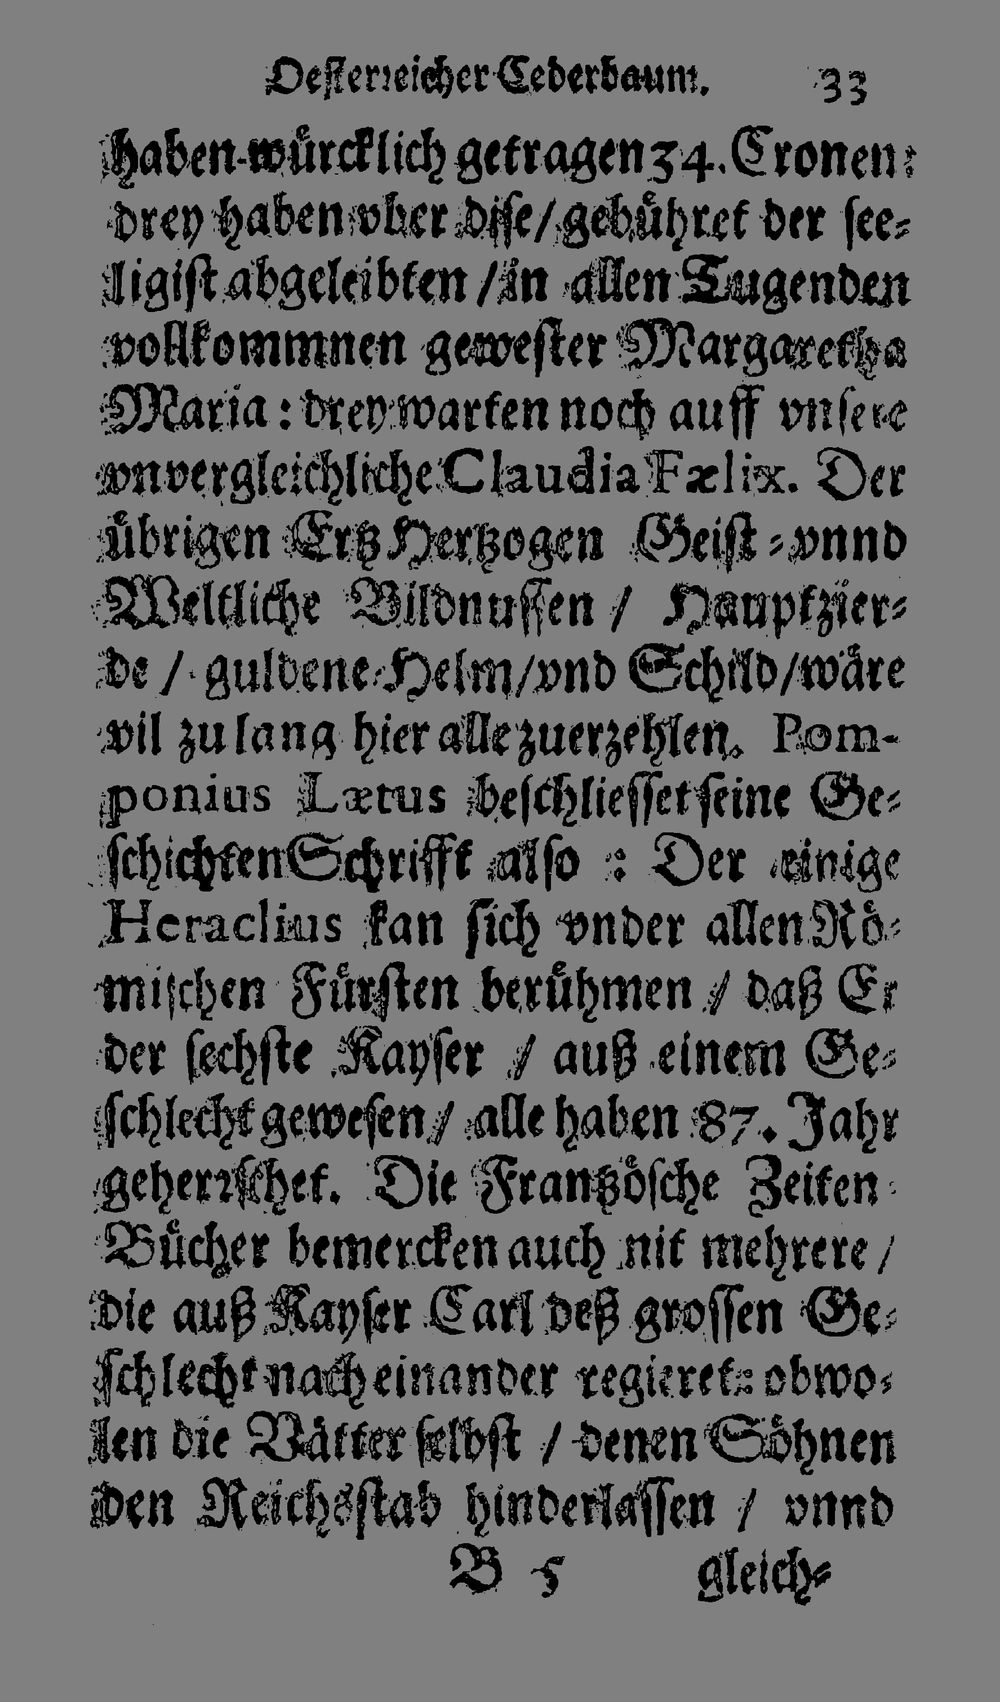 Oesterreicher Cederbaum. 33
haben würcklich getragen 34. Cronen:
drey haben vber dise / gebühret der see-
ligist abgeleibten / in allen Tugenden
vollkommnen gewester Margaretha
Maria : drey warten noch auff vnsere
vnvergleichliche Claudia Fælix. Der
übrigen Ertz Hertzogen Geist- vnnd
Weltliche Bildnussen / Hauptzier-
de / guldene Helm / vnd Schild / wäre
vil zu lang hier alle zuerzehlen. Pom-
ponius Lætus beschliesset seine Ge-
schichten Schrifft also : Der einige
Heraclius kan sich vnder allen Rö-
mischen Fürsten berühmen / daß Er
der sechste Kayser / auß einem Ge-
schlecht gewesen / alle haben 87. Jahr
geherrschet. Die Frantzösche Zeiten
Bücher bemercken auch nit mehrere /
die auß Kayser Carl deß grossen Ge-
schlecht nach einander regieret: obwo-
len die Vätter selbst / denen Söhnen
den Reichsstab hinderlassen / vnnd
B 5 gleich-